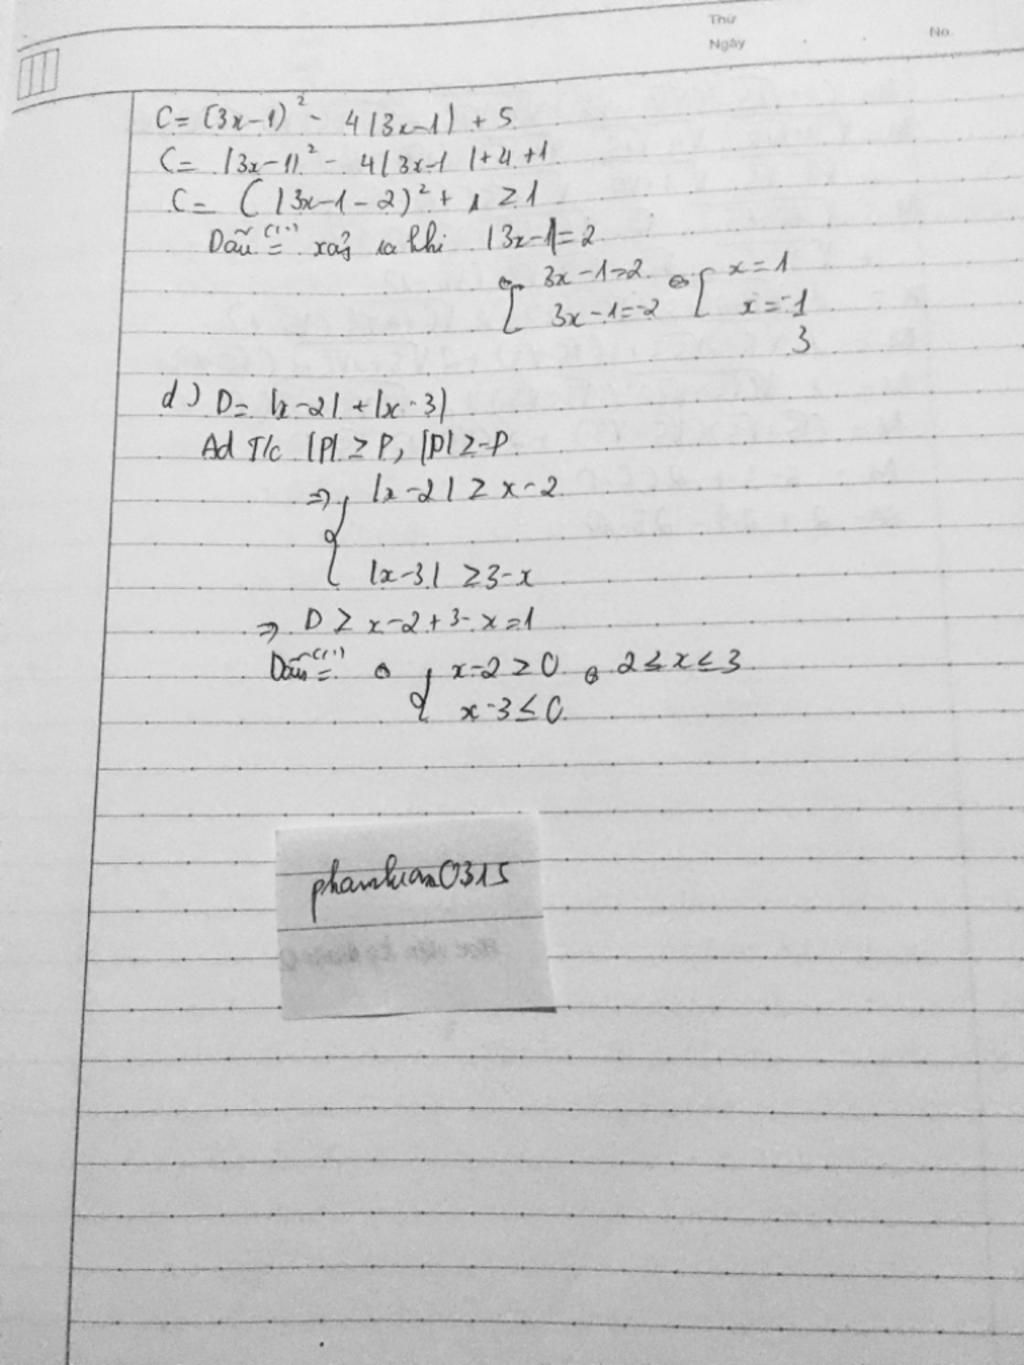 Thứ
Ngày
No.
C= (3x-1)² - 4|3x-1| + 5
C= |3x-1|² - 4|3x-1|+4+1
C= (|3x-1-2)² + 1 ≥1
Dấu "=" xảy ra khi |3x-1|=2
⇔ [ 3x-1=2 ⇔ [ x=1
3x-1=-2 x=-1/3
d) D= |x-2| + |x-3|
Ad T/c |P| ≥ P, |P| ≥-P
⇒ { |x-2| ≥ x-2
|x-3| ≥3-x
⇒ D ≥ x-2+3-x=1
Dấu "=" ⇔ { x-2≥0 ⇔ 2≤x≤3
x-3≤0
phamluan0315